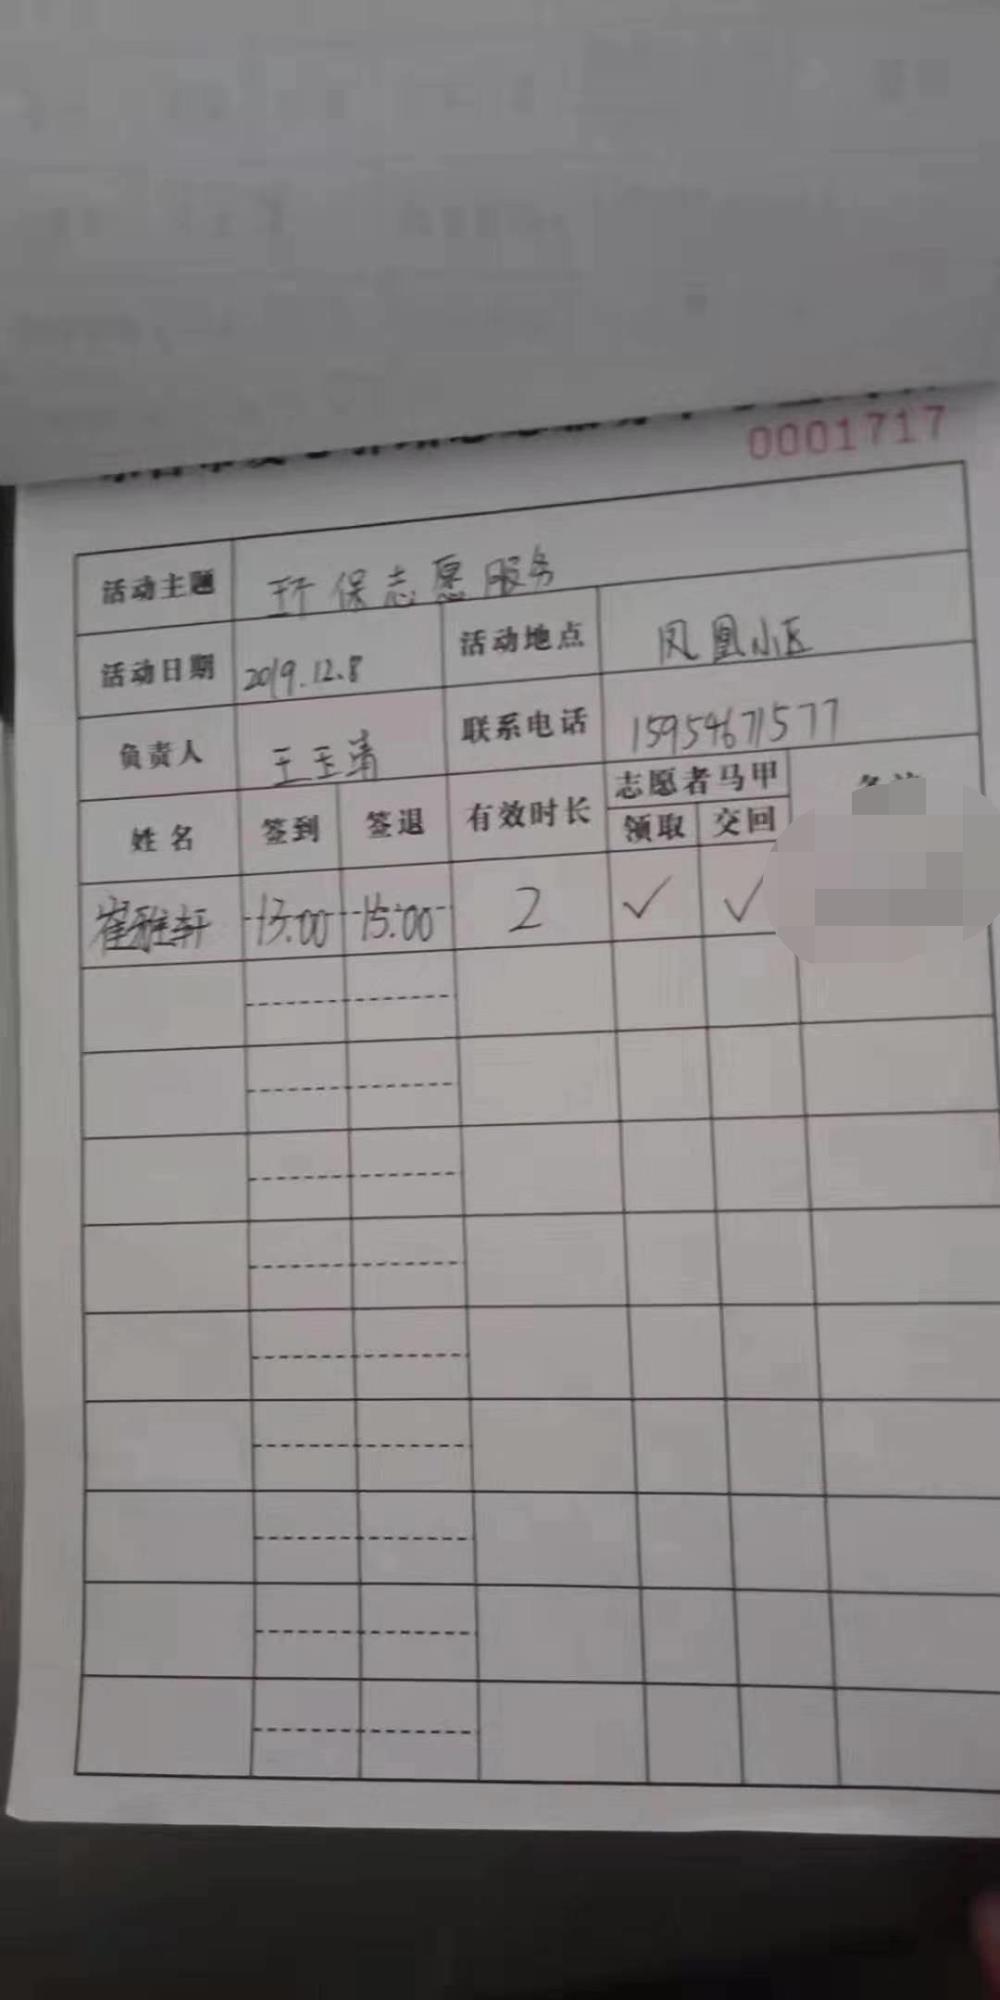 0001717
活动主题 环保志愿服务
活动日期 2019.12.8 活动地点 凤凰小区
负责人 王玉清 联系电话 15954671577
姓名 签到 签退 有效时长 志愿者马甲
领取 交回
崔雅轩 13:00 15:00 2 ✓ ✓